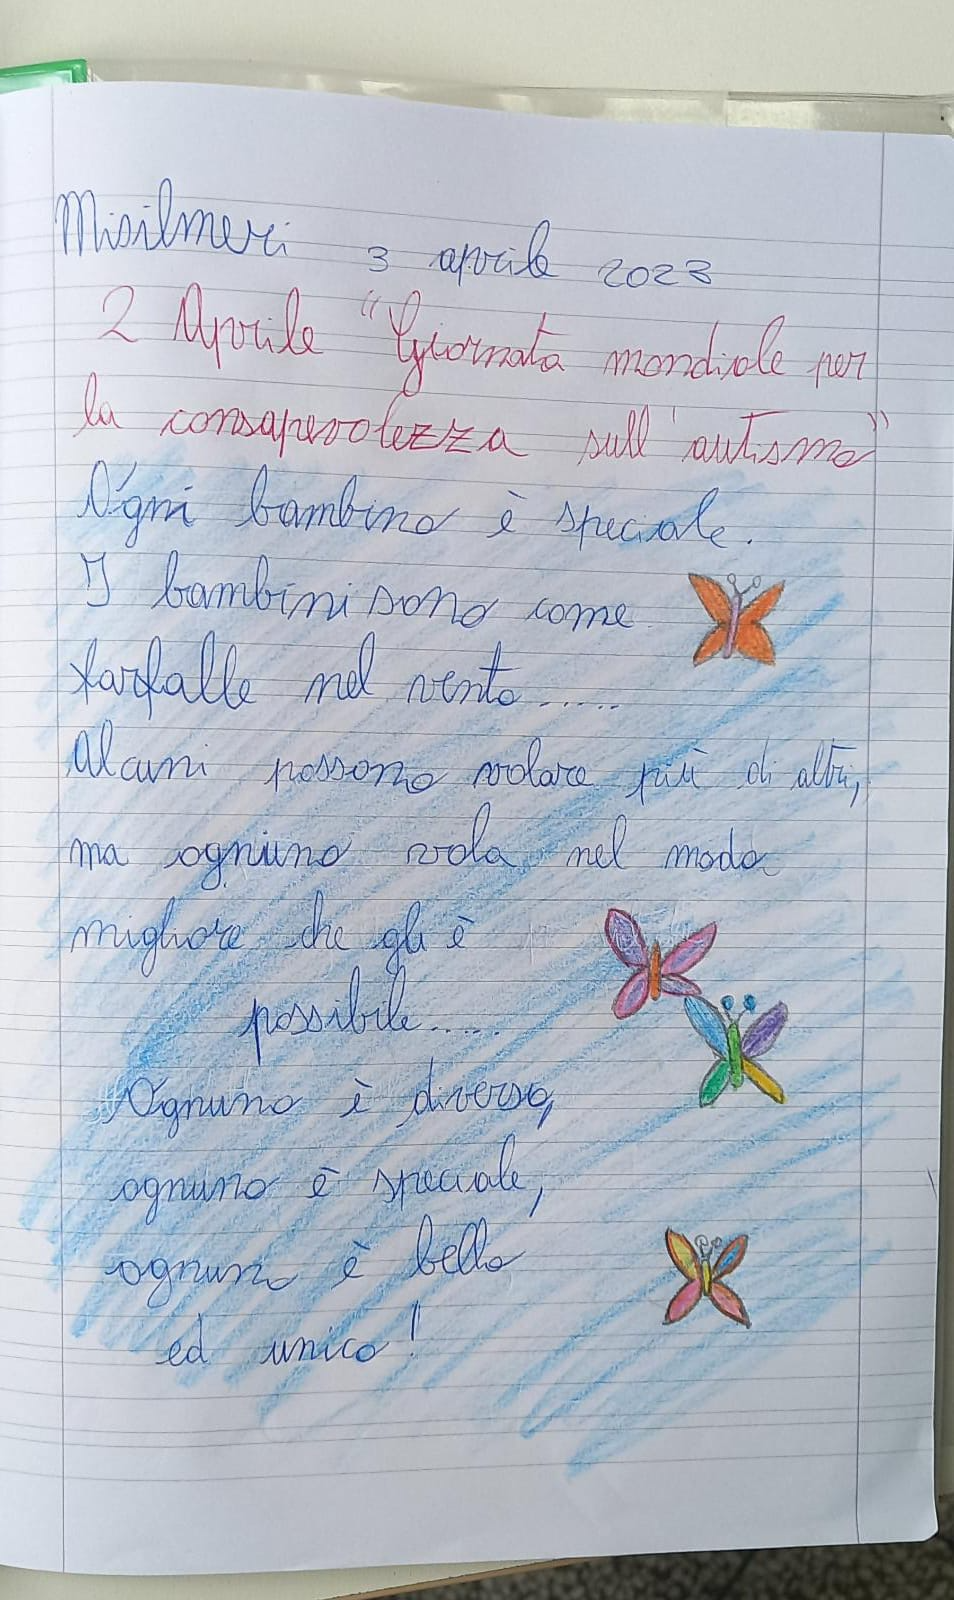 Misilmeri 3 aprile 2023
2 Aprile "Giornata mondiale per
la consapevolezza sull'autismo"
Ogni bambino è speciale.
I bambini sono come
farfalle nel vento.....
Alcuni possono volare più di altri,
ma ogniuno vola nel modo
migliore che gli è
possibile.....
Ognuno è diverso,
ognuno è speciale,
ognuno è bello
ed unico!